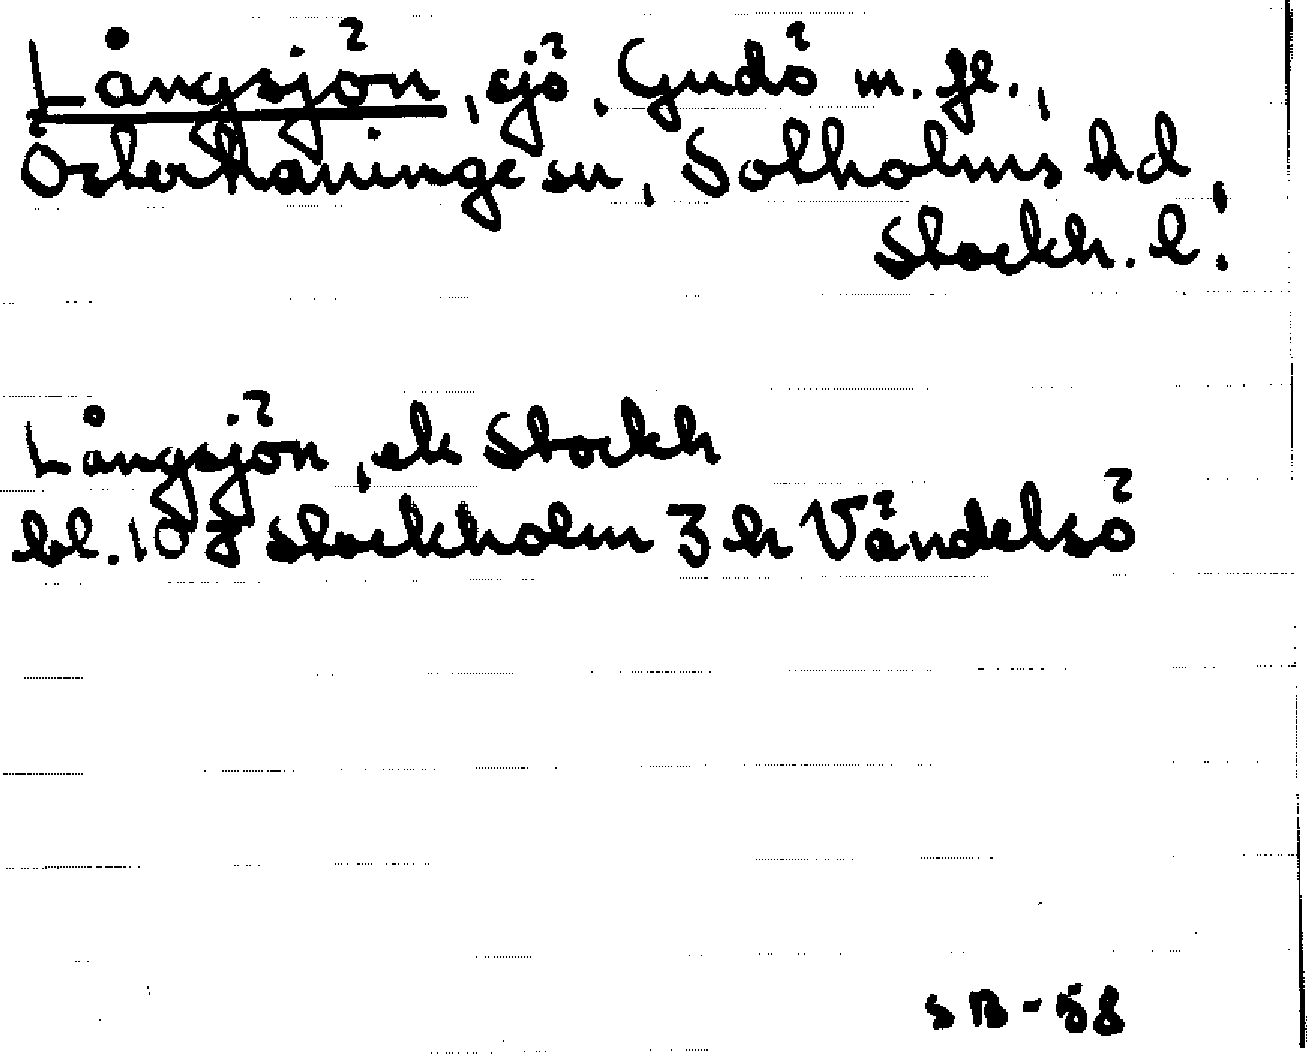 Långsjön, sjö, Gudö m. fl.,
Österhaninge sn, Sotholms hd,
Stockh. l.
Långsjön, ek Stockh
bl. 10 J Stockholm 3 h Vändelsö
SB-58